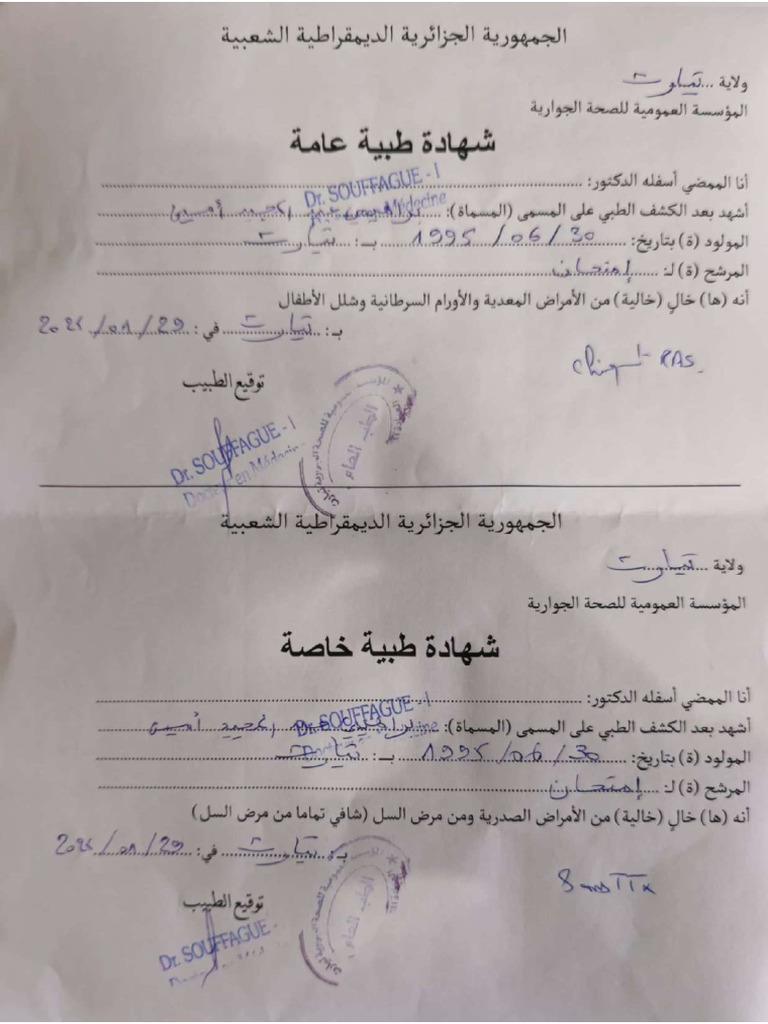 الجمهورية الجزائرية الديمقراطية الشعبية
ولاية ... تيارت
المؤسسة العمومية للصحة الجوارية
شهادة طبية عامة
أنا الممضي أسفله الدكتور: Dr. SOUFFAGUE - I
أشهد بعد الكشف الطبي على المسمى (المسماة): عبد الحميد أمين
المولود (ة) بتاريخ: 1995/06/30 بـ: تيارت
المرشح (ة) لـ: إمتحان
أنه (ها) خالٍ (خالية) من الأمراض المعدية والأورام السرطانية وشلل الأطفال
بـ: تيارت في: 29/01/
RAS.
توقيع الطبيب
الطب العام
Dr. SOUFFAGUE - I
en Médecine
الجمهورية الجزائرية الديمقراطية الشعبية
ولاية ... تيارت
المؤسسة العمومية للصحة الجوارية
شهادة طبية خاصة
أنا الممضي أسفله الدكتور: Dr. SOUFFAGUE - I
أشهد بعد الكشف الطبي على المسمى (المسماة): عبد الحميد أمين
المولود (ة) بتاريخ: 1995/06/30 بـ: تيارت
المرشح (ة) لـ: إمتحان
أنه (ها) خالٍ (خالية) من الأمراض الصدرية ومن مرض السل (شافي تماما من مرض السل)
بـ: تيارت في: 29/01/
توقيع الطبيب
Dr. SOUFFAGUE -